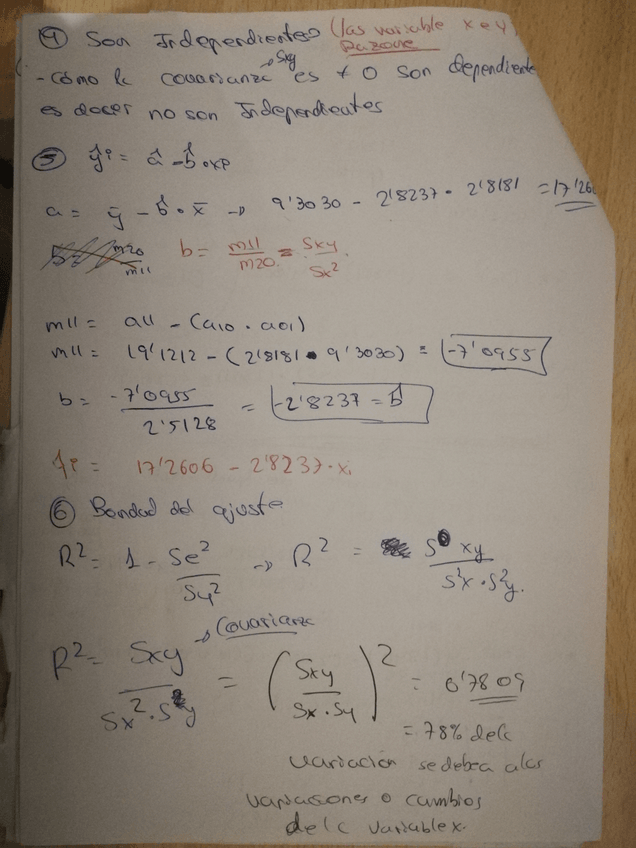 ④ Son Independientes (las variable x e y)
Razone
- Cómo la covarianza → Sxy es ≠ 0 son dependiente
es decir no son Independientes
⑤ ŷi = â - b̂ · xi
a = ȳ - b̂ · x̄ → 9'3030 - 2'8237 · 2'8181 = 17'26
m20 / m11 b = m11 / m20 = Sxy / Sx²
m11 = a11 - (a10 · a01)
m11 = 19'1212 - (2'8181 · 9'3030) = -7'0955
b = -7'0955 / 2'5128 = -2'8237 = b̂
ŷi = 17'2606 - 2'8237 · xi
⑥ Bondad del ajuste
R² = 1 - Se² / Sy² → R² = S xy / S²x · S²y.
→ Covarianza
R² = Sxy / Sx² · S²y = (Sxy / Sx · Sy)² = 0'7809
= 78% de la
variación se debea alas
variaciones o cambios
dela variable x.